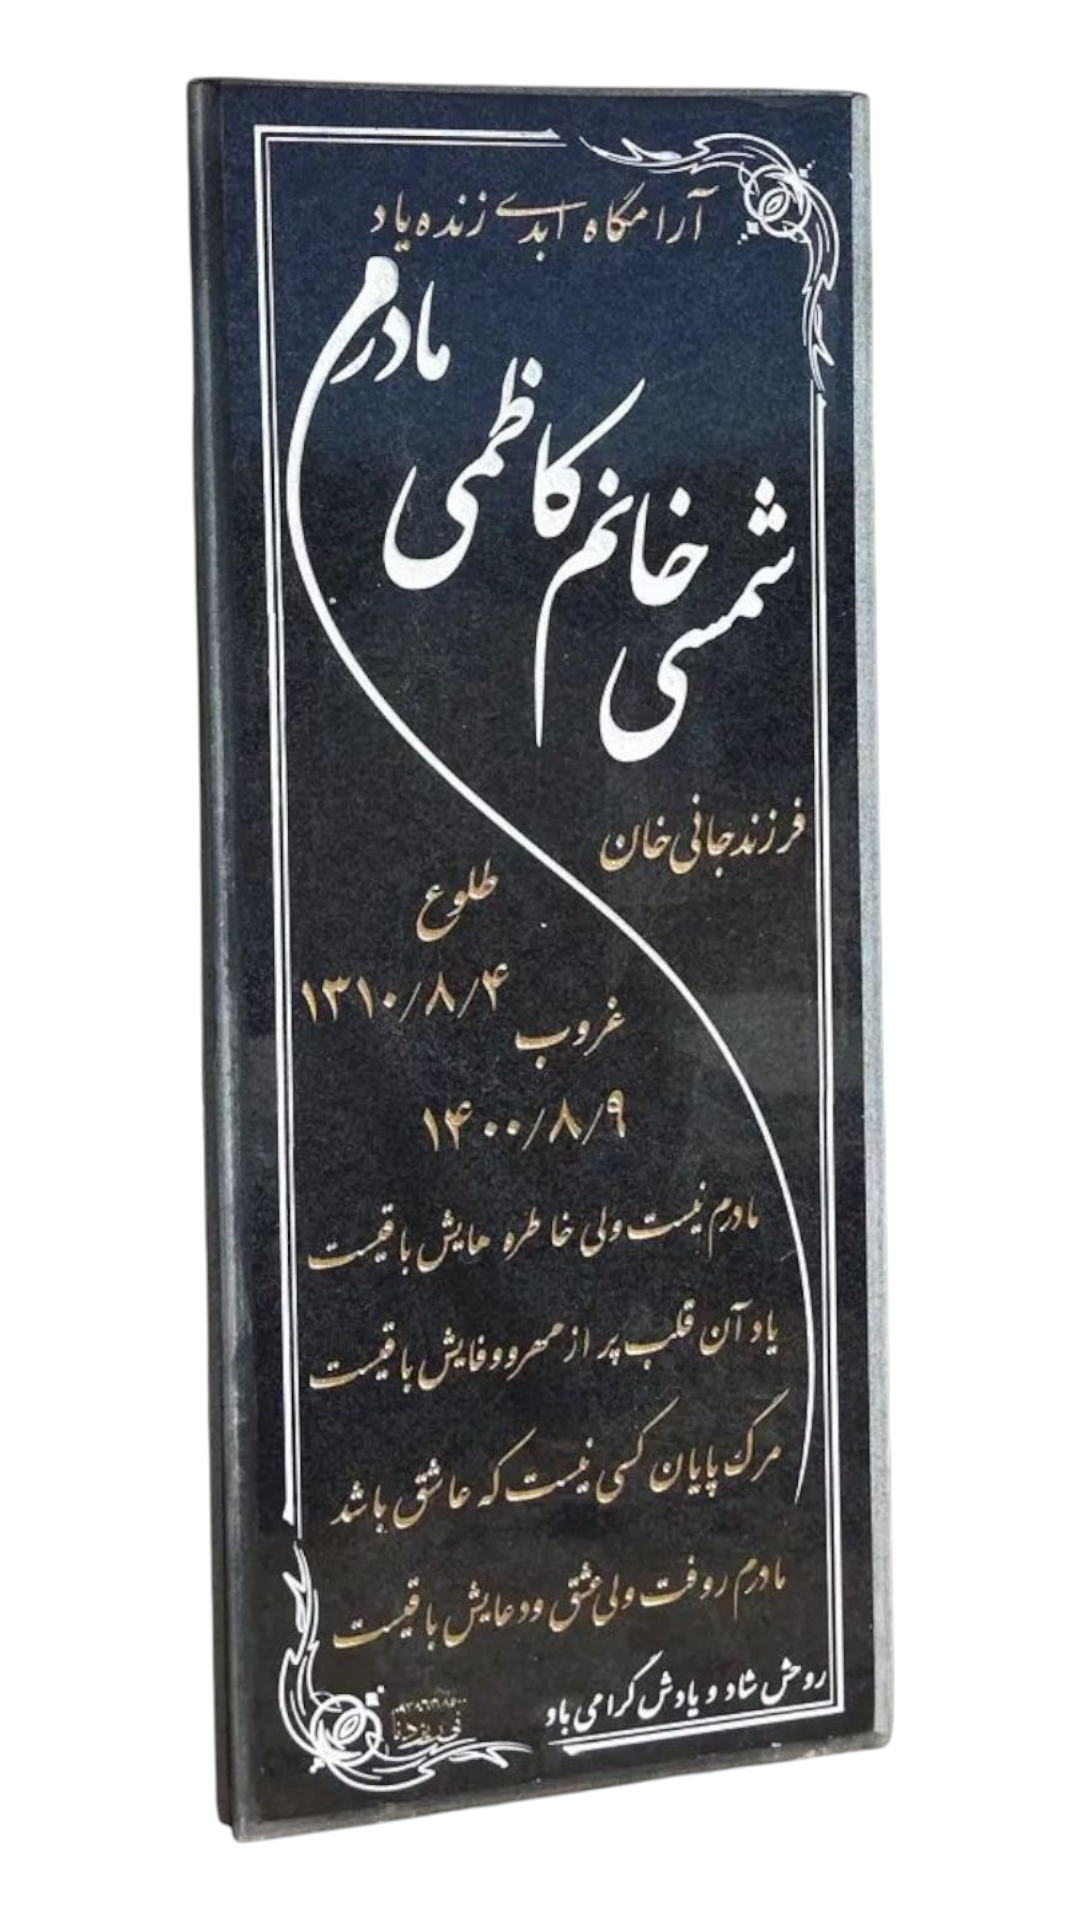 آرامگاه ابدی زنده یاد
مادرم
شمسی خانم کاظمی
فرزند جانی خان
طلوع
۱۳۱۰/۸/۴
غروب
۱۴۰۰/۸/۹
مادرم نیست ولی خاطره هایش باقیست
یاد آن قلب پر از مهر و وفایش باقیست
مرگ پایان کسی نیست که عاشق باشد
مادرم رو فت ولی عشق و دعایش باقیست
روحش شاد و یادش گرامی باد